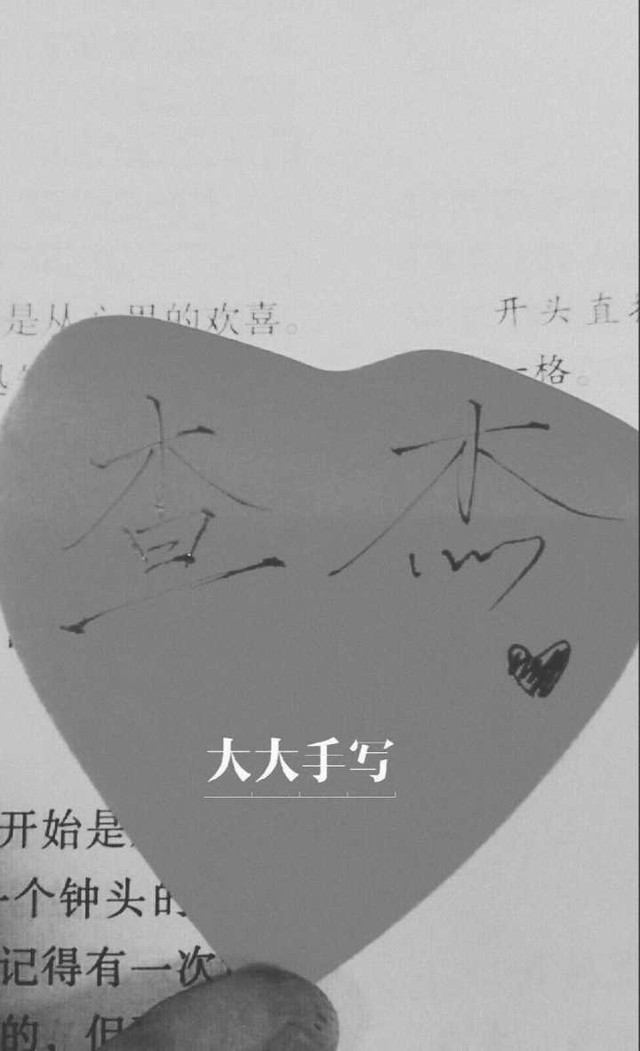 是从心里的欢喜。
开头直
格。
查杰
大大手写
开始是
一个钟头的
记得有一次
的，但